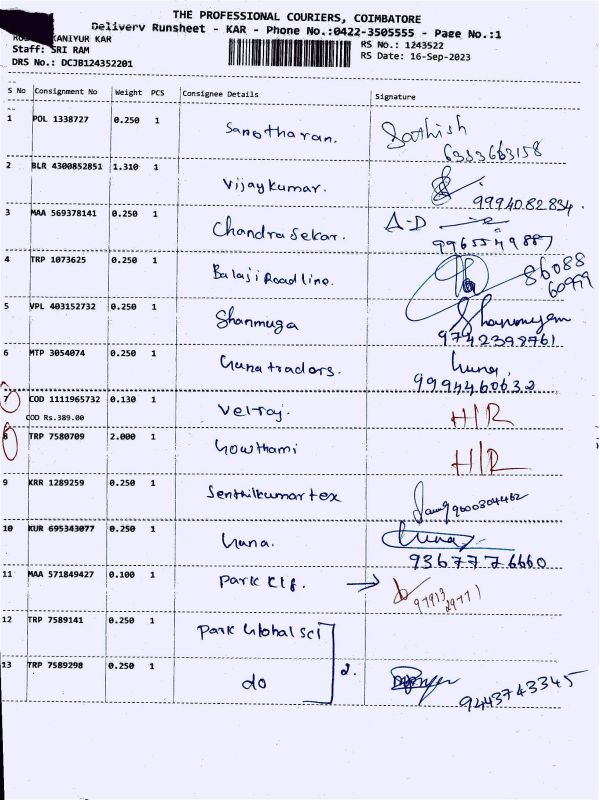 THE PROFESSIONAL COURIERS, COIMBATORE
Delivery Runsheet - KAR - Phone No.:0422-3505555 - Page No.:1
KANIYUR KAR
Staff: SRI RAM
DRS No.: DCJB124352201
RS No.: 1243522
RS Date: 16-Sep-2023
S No Consignment No Weight PCS Consignee Details Signature
1 POL 1338727 0.250 1 Sanotharan. Sathish
6383663158
2 BLR 4300852851 1.310 1 Vijaykumar.
9994082834.
3 MAA 569378141 0.250 1 Chandrasekar. A-D
9965549887
4 TRP 1073625 0.250 1 Balaji Roadline. 86088
60999
5 VPL 403152732 0.250 1 Shanmuga
9742398761
6 MTP 3054074 0.250 1 Guna tradors. Guna,
9994460632
7 COD 1111965732 0.130 1 Velraj. H/R
COD Rs.389.00
8 TRP 7580709 2.000 1 Gowthami H/R
9 KRR 1289259 0.250 1 Senthilkumar tex 9600304462
10 KUR 695343077 0.250 1 Guna. Guna
9367776660
11 MAA 571849427 0.100 1 Park Clg. →
12 TRP 7589141 0.250 1 Park Global Scl
13 TRP 7589298 0.250 1 do 2.
9443743345